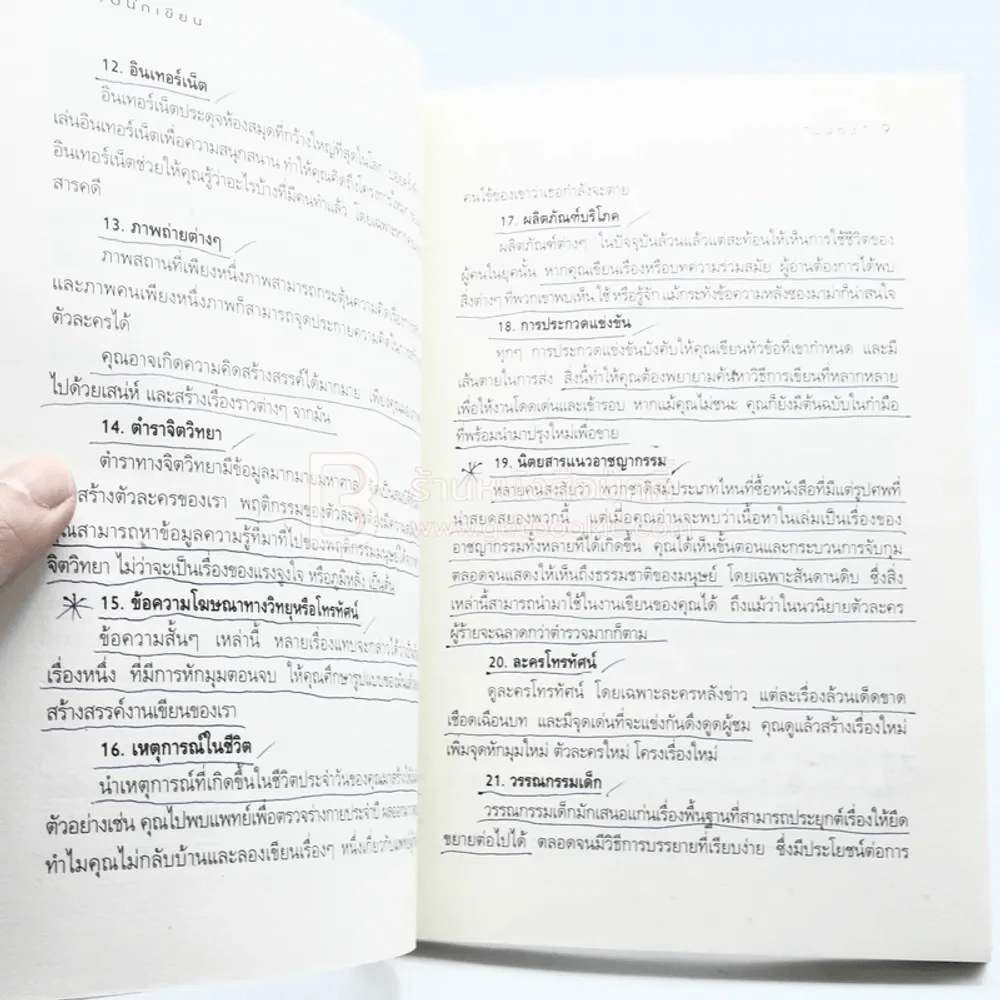 นักเขียน
12. อินเทอร์เน็ต
อินเทอร์เน็ตประดุจห้องสมุดที่กว้างใหญ่ที่สุดในโลก
เล่นอินเทอร์เน็ตเพื่อความสนุกสนาน ทำให้คุณคิดถึงโครงการใหม่
อินเทอร์เน็ตช่วยให้คุณรู้ว่าอะไรบ้างที่มีคนทำแล้ว โดยเฉพาะ
สารคดี
13. ภาพถ่ายต่างๆ
ภาพสถานที่เพียงหนึ่งภาพสามารถกระตุ้นความคิดเรื่องการ
และภาพคนเพียงหนึ่งภาพก็สามารถจุดประกายความคิดในการ
ตัวละครได้
คุณอาจเกิดความคิดสร้างสรรค์ได้มากมาย เพียงคุณ
ไปด้วยเสน่ห์ และสร้างเรื่องราวต่างๆ จากมัน
14. ตำราจิตวิทยา
ตำราทางจิตวิทยามีข้อมูลมากมายมหาศาล
สร้างตัวละครของเรา พฤติกรรมของตัวละครต้องมี
คุณสามารถหาข้อมูลความรู้ที่มาที่ไปของพฤติกรรมมนุษย์ได้จาก
จิตวิทยา ไม่ว่าจะเป็นเรื่องของแรงจูงใจ หรือภูมิหลัง เป็นต้น
15. ข้อความโฆษณาทางวิทยุหรือโทรทัศน์
ข้อความสั้นๆ เหล่านี้ หลายเรื่องแทบจะกล่าวได้ว่า
เรื่องหนึ่ง ที่มีการหักมุมตอนจบ ให้คุณศึกษารูปแบบของมัน
สร้างสรรค์งานเขียนของเรา
16. เหตุการณ์ในชีวิต
นำเหตุการณ์ที่เกิดขึ้นในชีวิตประจำวันของคุณมาสร้าง
ตัวอย่างเช่น คุณไปพบแพทย์เพื่อตรวจร่างกายประจำปี
ทำไมคุณไม่กลับบ้านและลองเขียนเรื่องๆ หนึ่งเกี่ยวกับ
คนไข้ของเขาว่าเธอกำลังจะตาย
17. ผลิตภัณฑ์บริโภค
ผลิตภัณฑ์ต่างๆ ในปัจจุบันล้วนแล้วแต่สะท้อนให้เห็นการใช้ชีวิตของ
ผู้คนในยุคนั้น หากคุณเขียนเรื่องหรือบทความร่วมสมัย ผู้อ่านต้องการได้พบ
สิ่งต่างๆ ที่พวกเขาพบเห็น ใช้ หรือรู้จัก แม้กระทั่งข้อความหลังซองมาม่าก็น่าสนใจ
18. การประกวดแข่งขัน
ทุกๆ การประกวดแข่งขันบังคับให้คุณเขียนหัวข้อที่เขากำหนด และมี
เส้นตายในการส่ง สิ่งนี้ทำให้คุณต้องพยายามค้นหาวิธีการเขียนที่หลากหลาย
เพื่อให้งานโดดเด่นและเข้ารอบ หากแม้คุณไม่ชนะ คุณก็ยังมีต้นฉบับในกำมือ
ที่พร้อมนำมาปรุงใหม่เพื่อขาย
19. นิตยสารแนวอาชญากรรม
หลายคนสงสัยว่า พวกซาดิสม์ประเภทไหนที่ซื้อหนังสือที่มีแต่รูปศพที่
น่าสยดสยองพวกนี้ แต่เมื่อคุณอ่านจะพบว่าเนื้อหาในเล่มเป็นเรื่องของ
อาชญากรรมทั้งหลายที่ได้เกิดขึ้น คุณได้เห็นขั้นตอนและกระบวนการจับกุม
ตลอดจนแสดงให้เห็นถึงธรรมชาติของมนุษย์ โดยเฉพาะสันดานดิบ ซึ่งสิ่ง
เหล่านี้สามารถนำมาใช้ในงานเขียนของคุณได้ ถึงแม้ว่าในนวนิยายตัวละคร
ผู้ร้ายจะฉลาดกว่าตำรวจมากก็ตาม
20. ละครโทรทัศน์
ดูละครโทรทัศน์ โดยเฉพาะละครหลังข่าว แต่ละเรื่องล้วนเด็ดขาด
เชือดเฉือนบท และมีจุดเด่นที่จะแข่งกันดึงดูดผู้ชม คุณดูแล้วสร้างเรื่องใหม่
เพิ่มจุดหักมุมใหม่ ตัวละครใหม่ โครงเรื่องใหม่
21. วรรณกรรมเด็ก
วรรณกรรมเด็กมักเสนอแก่นเรื่องพื้นฐานที่สามารถประยุกต์เรื่องให้ยืด
ขยายต่อไปได้ ตลอดจนมีวิธีการบรรยายที่เรียบง่าย ซึ่งมีประโยชน์ต่อการ